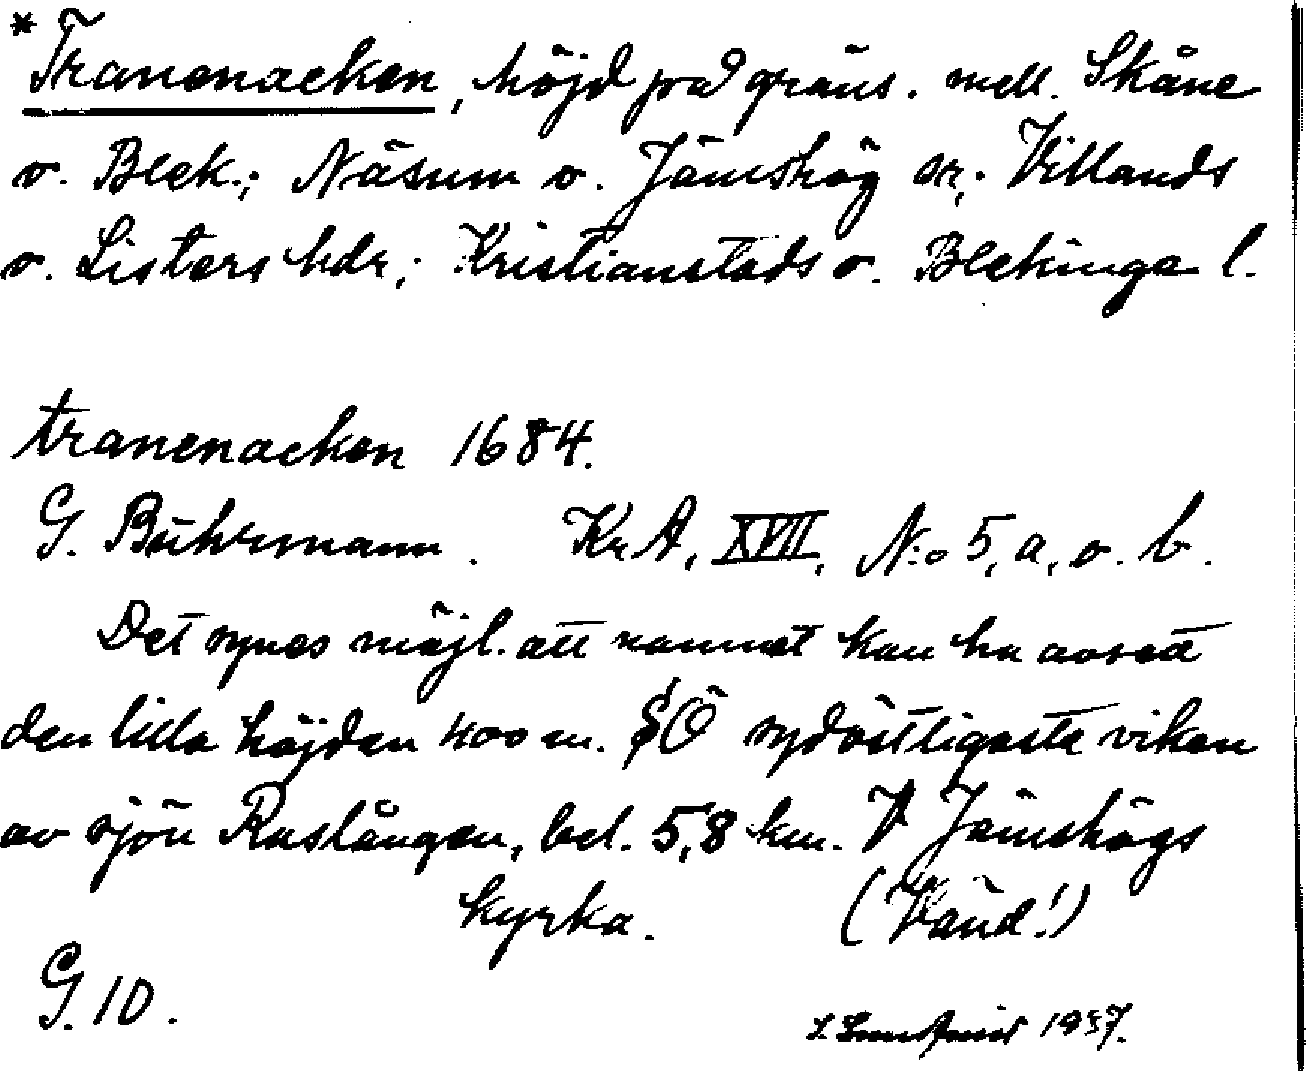 *Tranenacken, höjd på gräns. mell. Skåne
o. Blek.; Näsum o. Jämshög sr.; Villands
o. Listers hdr.; Kristianstads o. Blekinge l.
tranenacken 1684.
G. Buhrmann. Kr. A. XVII, N:o 5, a, o. b.
Det synes möjl. att namnet kan ha avsett
den lilla höjden 400 m. SÖ sydöstligaste viken
av sjön Raslången, bel. 5,8 km. V Jämshögs
kyrka. (Vänd!)
G. 10.
1937.